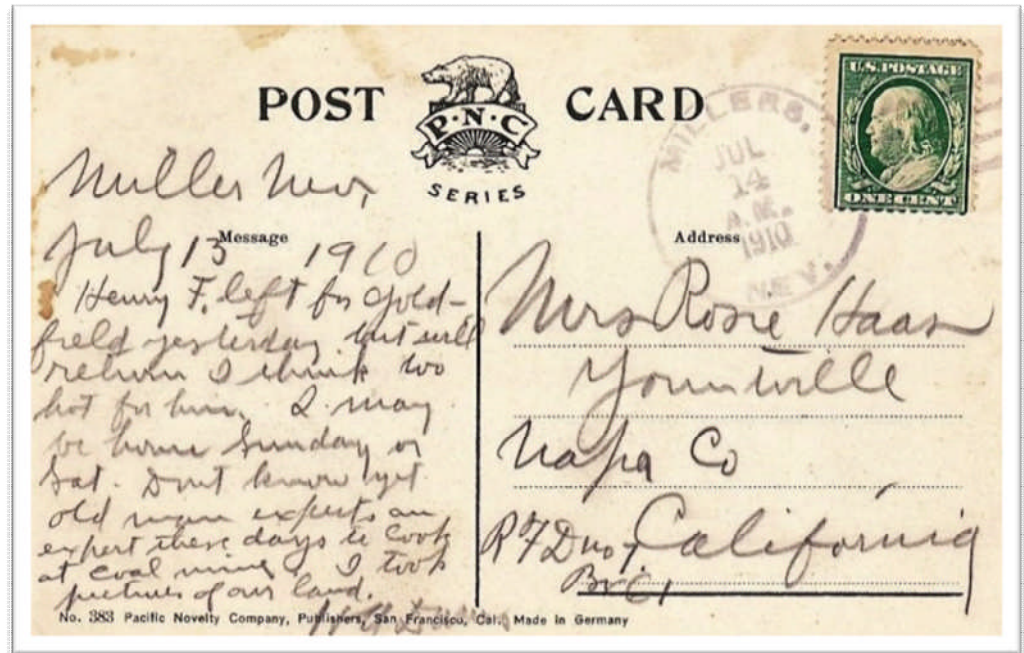 POST CARD
P·N·C
SERIES
U.S. POSTAGE
ONE CENT
MILLERS,
JUL
14
A.M.
1910
NEV.
Miller Nev
Message
July 13 1910
Henry F. left for Gold-
field yesterday but will
return I think too
hot for him. I may
be home Sunday or
Sat. Dont know yet
old man expects an
expert these days to look
at coal mine. I took
pictures of our land.
Address
Mrs Rosie Haas
Yountville
Napa Co
California
R F D no 1
Bx C1
No. 383 Pacific Novelty Company, Publishers, San Francisco, Cal. Made in Germany